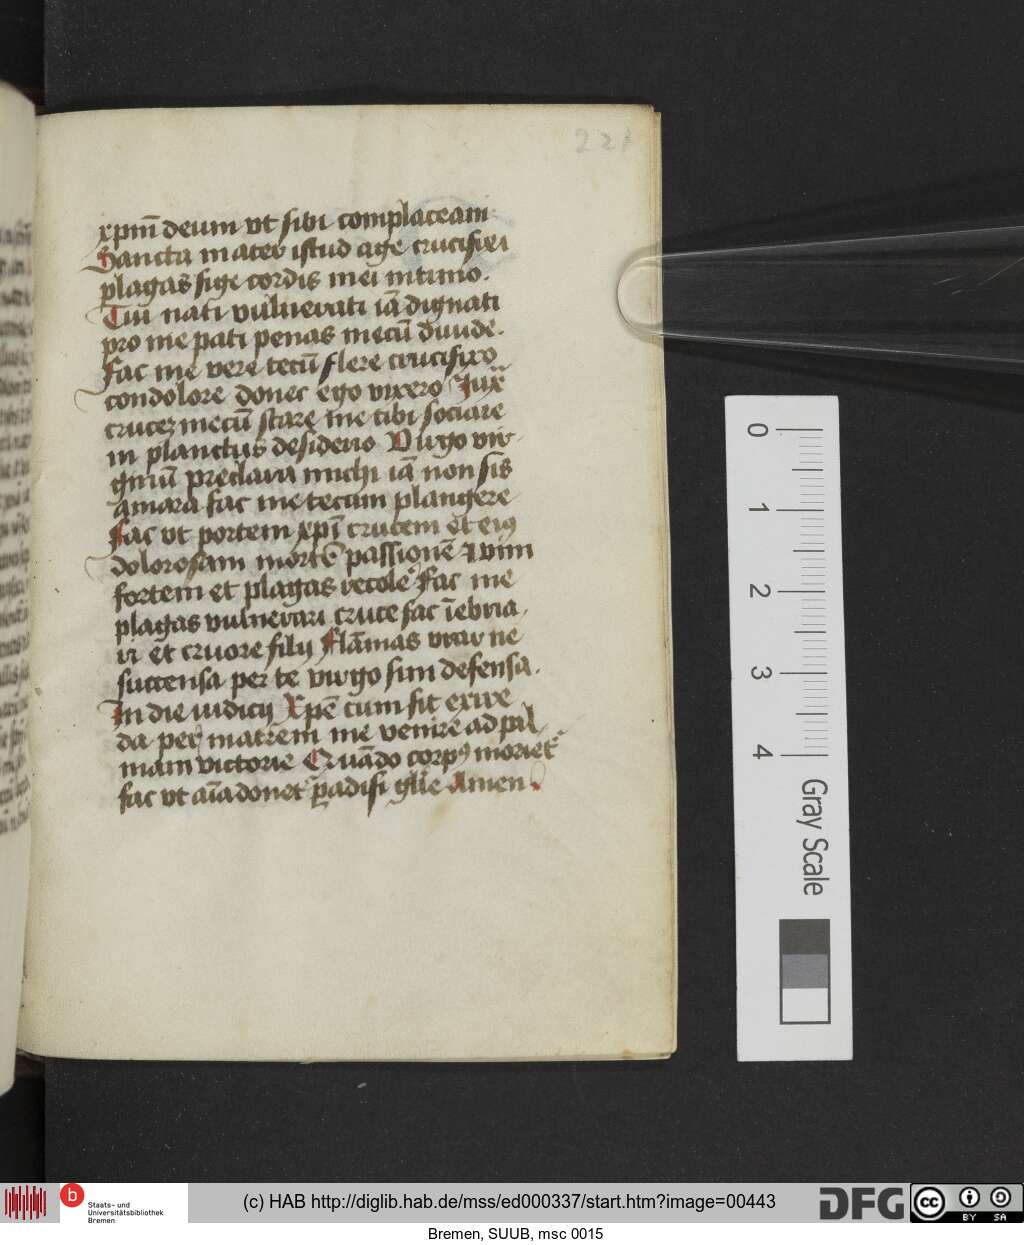 221
xpm̄ deum vt sibi complaceam
Sancta mater istud age crucifixi
plagas fige cordis mei intimo.
Tui nati vulnerati iā dignati
pro me pati penas mecū diuide.
Fac me vere tecū flere crucifixo
condolore donec ego vixero Jux̄
crucez mecū stare me tibi sociare
in planctus desiderio Uirgo vir-
ginū preclara michi iā non sis
amara fac me tecum plangere
Fac vt portem xpī crucem et eiꝯ
dolorosam mortē passionē
fortem et plagas recole Fac me
plagas vulnerari cruce fac īebria-
ri et cruore filij Flāmas vrar ne
succensa per te virgo sim defensa.
In die iudicij Xpē cum sit exire
da per matrem me venire ad pal-
mam victorie Quādo corpꝯ moriet᷑
fac vt aīa donet᷑ ꝑadisi gl̄ie Amen.
0
1
2
3
4
Gray Scale
b
Staats- und
Universitätsbibliothek
Bremen
(c) HAB http://diglib.hab.de/mss/ed000337/start.htm?image=00443
DFG
cc
BY SA
Bremen, SUUB, msc 0015